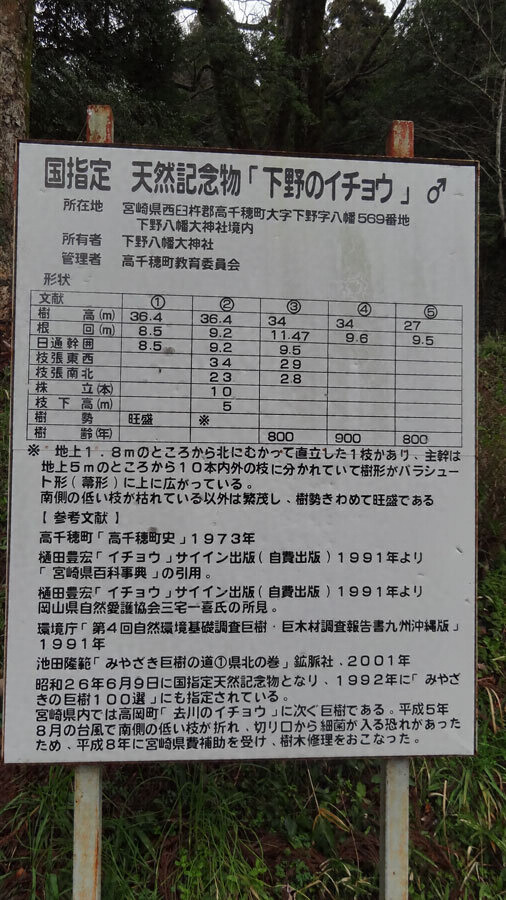 国指定 天然記念物「下野のイチョウ」♂
所在地 宮崎県西臼杵郡高千穂町大字下野字八幡569番地
下野八幡大神社境内
所有者 下野八幡大神社
管理者 高千穂町教育委員会
形状
文献 ① ② ③ ④ ⑤
樹高(m) 36.4 36.4 34 34 27
根回(m) 8.5 9.2 11.47 9.6 9.5
目通幹囲 8.5 9.2 9.5
枝張東西 34 29
枝張南北 23 2.8
株立(本) 10
枝下高(m) 5
樹勢 旺盛 ※
樹齢(年) 800 900 800
※ 地上1.8mのところから北にむかって直立した1枝があり、主幹は
地上5mのところから10本内外の枝に分かれていて樹形がパラシュー
ト形(幕形)に上に広がっている。
南側の低い枝が枯れている以外は繁茂し、樹勢きわめて旺盛である
【参考文献】
高千穂町「高千穂町史」1973年
樋田豊宏「イチョウ」サイイン出版(自費出版)1991年より
「宮崎県百科事典」の引用。
樋田豊宏「イチョウ」サイイン出版(自費出版)1991年より
岡山県自然愛護協会三宅一喜氏の所見。
環境庁「第4回自然環境基礎調査巨樹・巨木材調査報告書九州沖縄版」
1991年
池田隆範「みやざき巨樹の道①県北の巻」鉱脈社、2001年
昭和26年6月9日に国指定天然記念物となり、1992年に「みやざ
きの巨樹100選」にも指定されている。
宮崎県内では高岡町「去川のイチョウ」に次ぐ巨樹である。平成5年
8月の台風で南側の低い枝が折れ、切り口から細菌が入る恐れがあった
ため、平成8年に宮崎県費補助を受け、樹木修理をおこなった。